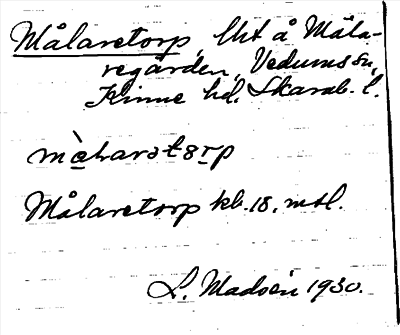 Målaretorp, lht å Måla-
regården, Vedums sn,
Kinne hd. Skarab. l.
Målaretorp kb. 18. mtl.
L. Madsén 1930.